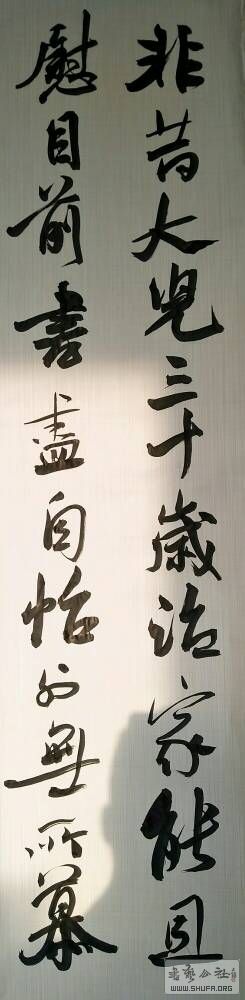 非昔大兒三十歲治家能且
慰目前書畫自怡外無所慕
書藝公社
WWW.SHUFA.ORG